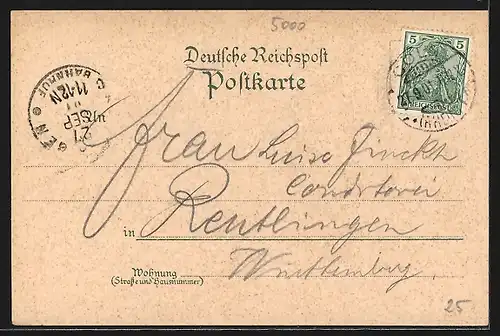 5000
Deutsche Reichspost
Postkarte
5
REICHSPOST
C. BAHNHOF
11-12 N
27
SEP
An
Frau Luise Finckh
Conditorei
in Reutlingen
Württemberg.
Wohnung
(Straße und Hausnummer)
25